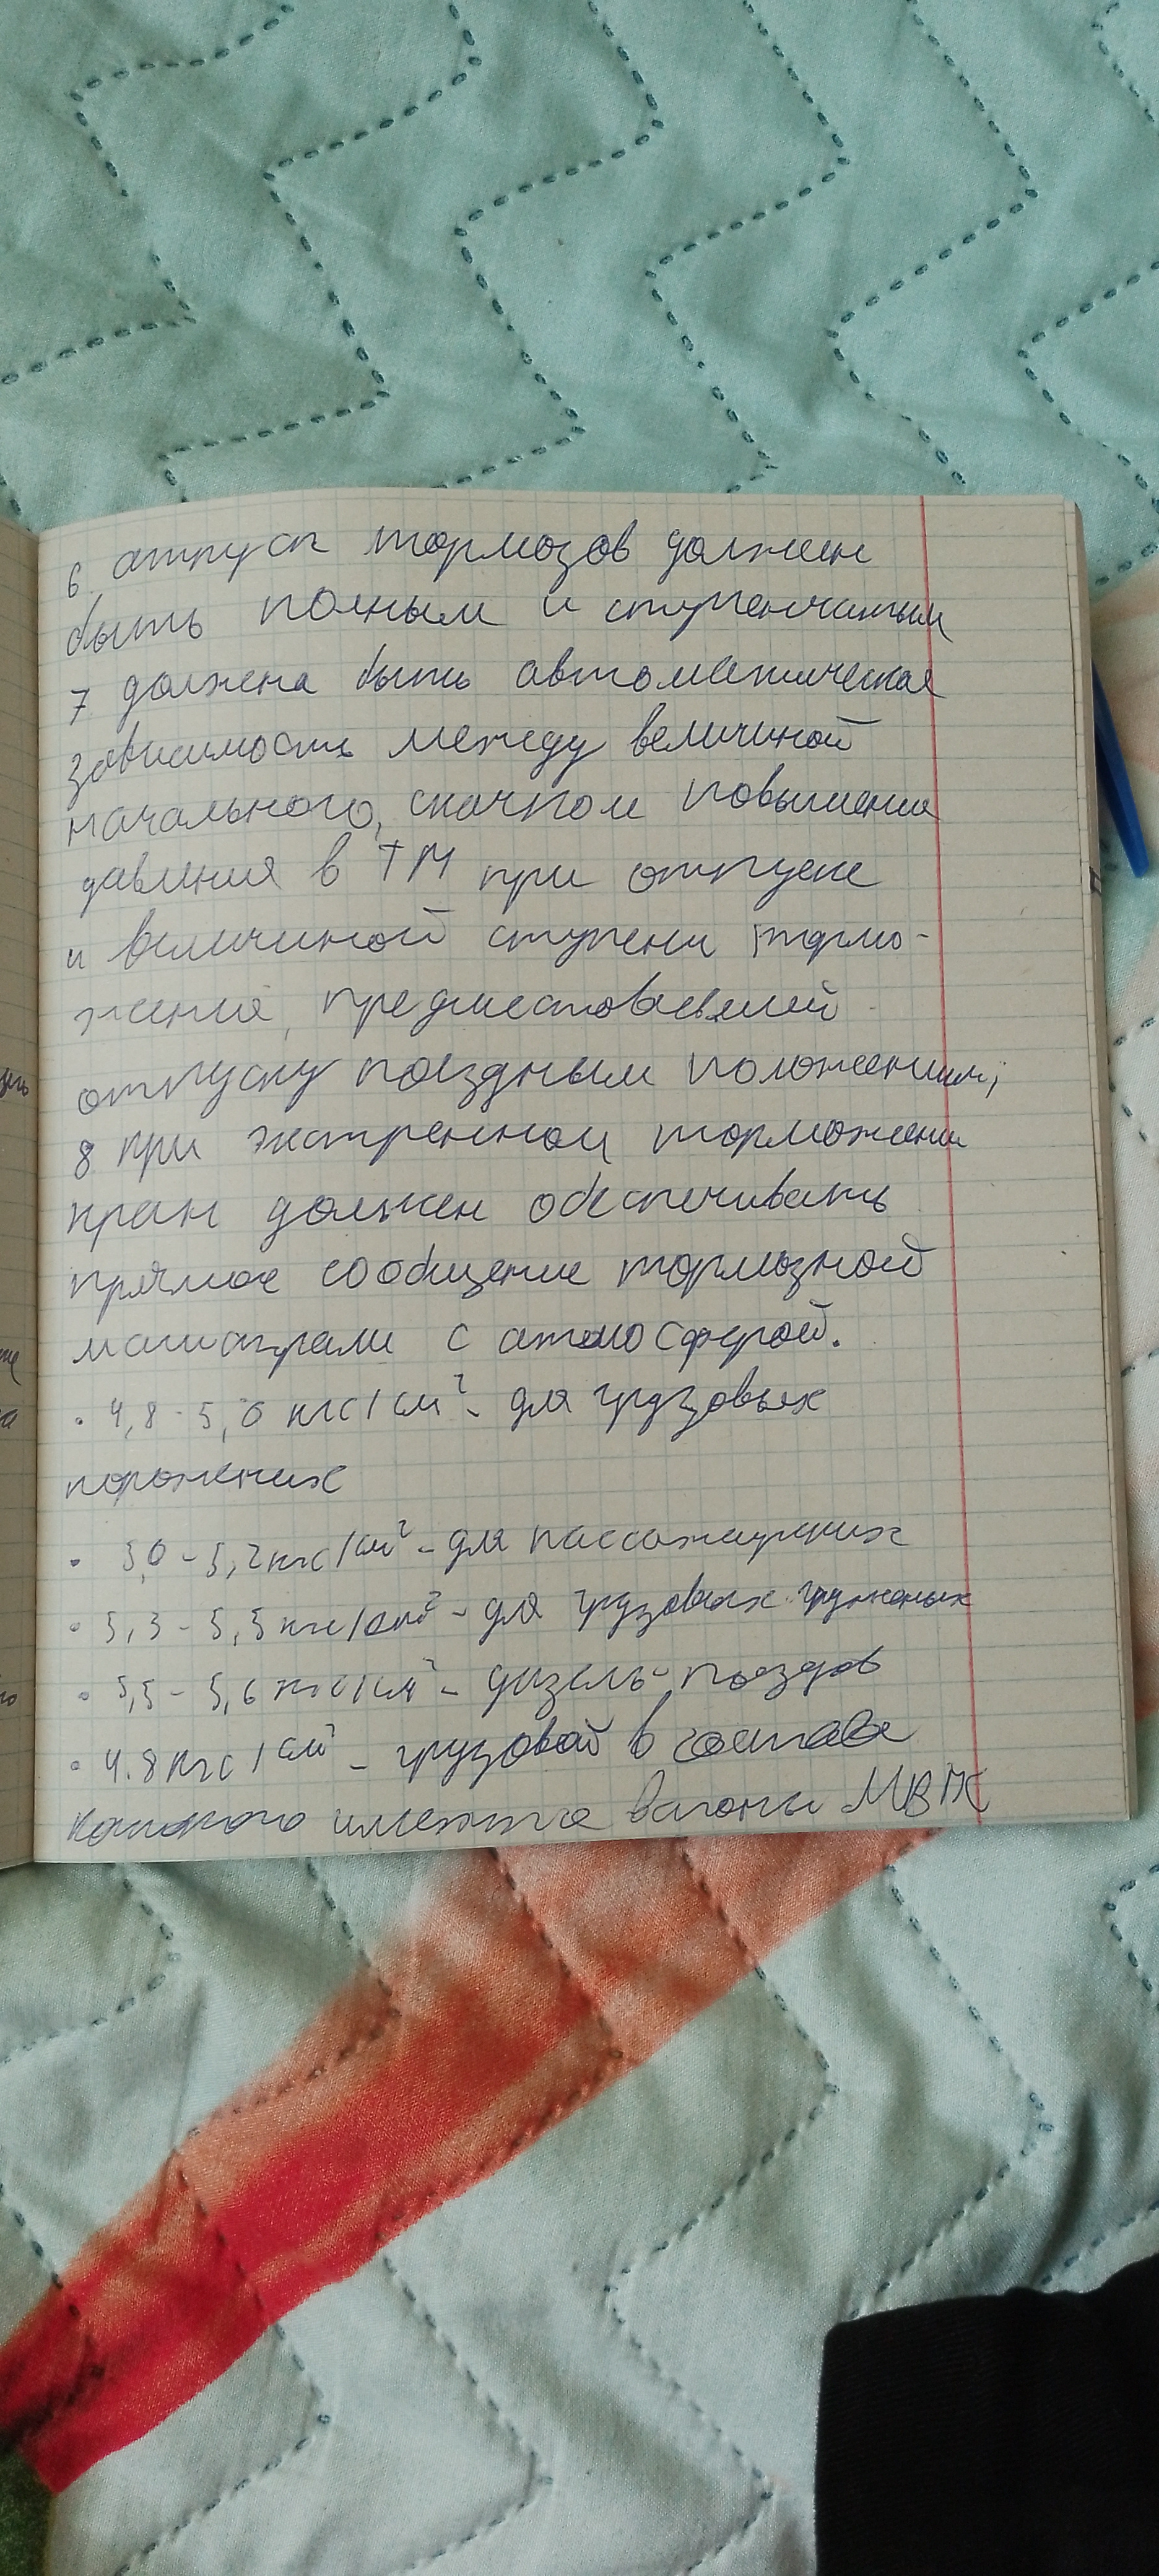 6 отпуск тормозов должен
быть полным и ступенчатым
7 должена быть автоматическая
зависимость между величиной
начального, скачком повышения
давления в ТМ при отпуске
и величиной ступени тормо-
жения, предшествовавшей
отпуску поездным положением;
8 при экстренном торможении
кран должен обеспечивать
прямое сообщение тормозной
магистрали с атмосферой.
• 4,8-5,0 кгс/см² - для грузовых
порожних
• 5,0-5,2 кгс/см² - для пассажирских
• 5,3-5,5 кгс/см² - для грузовых груженых
• 5,5-5,6 кгс/см² - дизель-поездов
• 4.8 кгс/см² - грузовой в составе
которого имеются вагоны МВПС